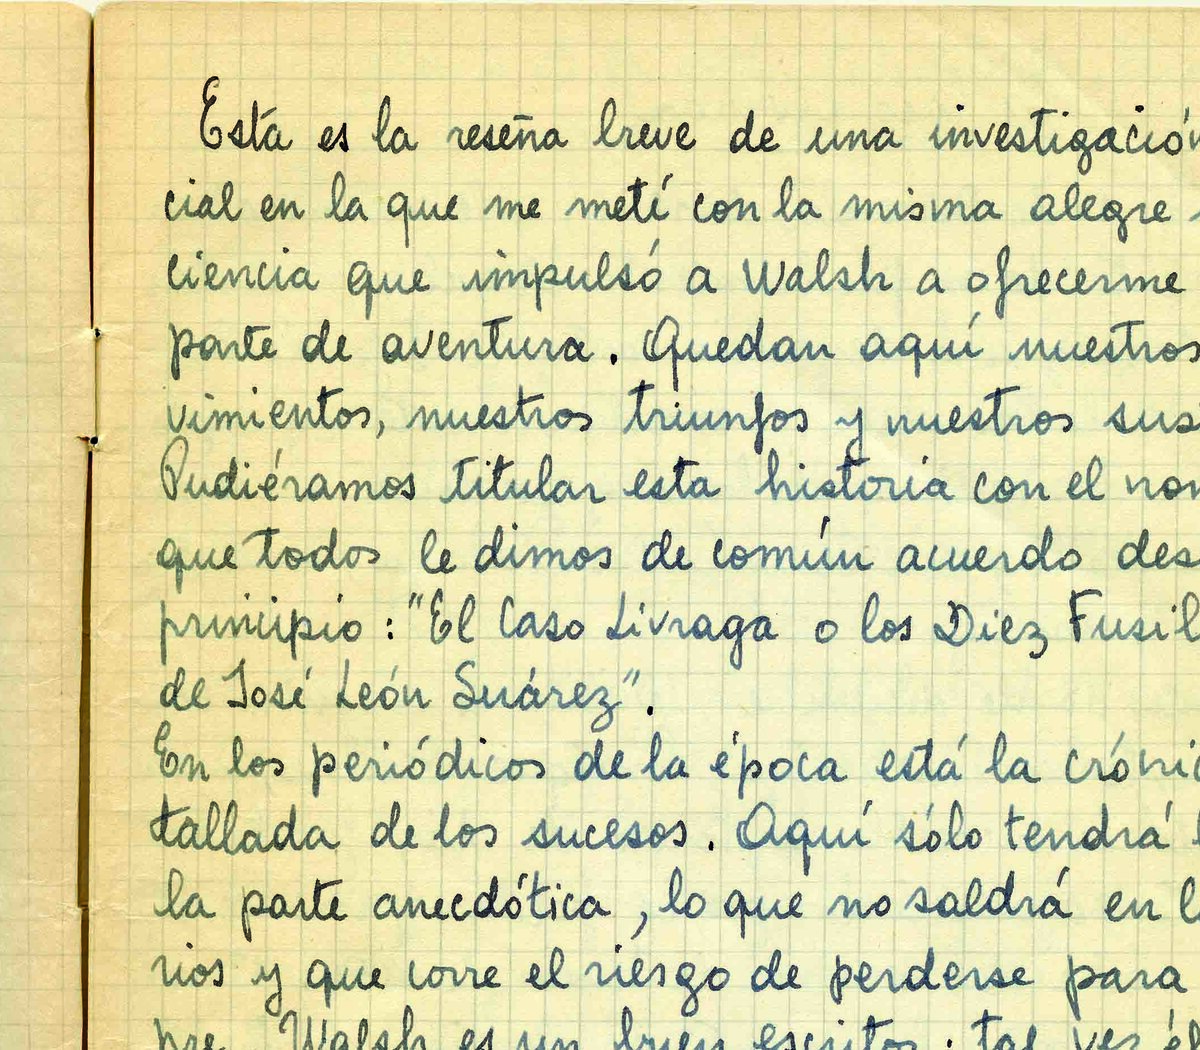 Esta es la reseña breve de una investigación
cial en la que me metí con la misma alegre
ciencia que impulsó a Walsh a ofrecerme
parte de aventura. Quedan aquí nuestros
vimientos, nuestros triunfos y nuestros sus
Pudiéramos titular esta historia con el nom
que todos le dimos de común acuerdo des
principio: "El Caso Livraga o los Diez Fusil
de José León Suárez".
En los periódicos de la época está la cróni
tallada de los sucesos. Aquí sólo tendrá
la parte anecdótica, lo que no saldrá en l
rios y que corre el riesgo de perderse para
pre. Walsh es un buen escritor; tal vez él